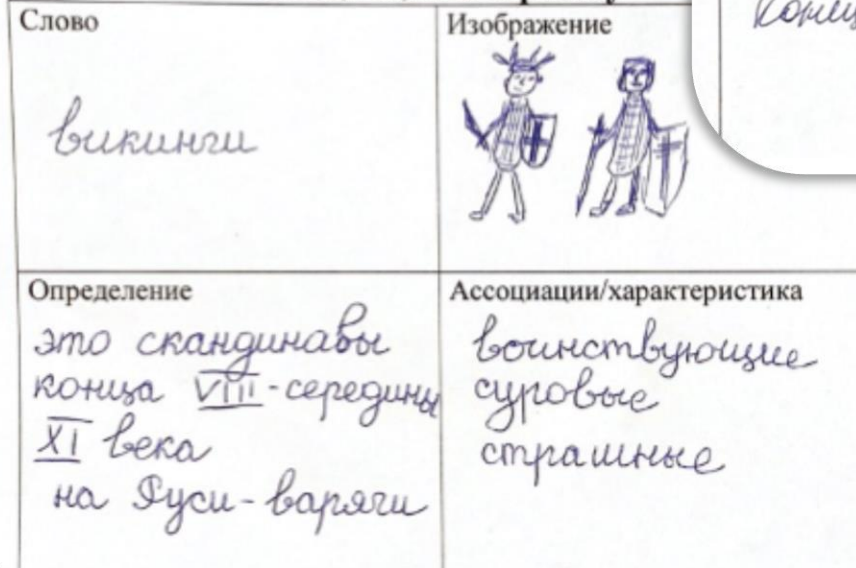 Слово
викинги
Изображение
Определение
это скандинавы
конца VIII-середины
XI века
на Руси-варяги
Ассоциации/характеристика
воинствующие
суровые
страшные